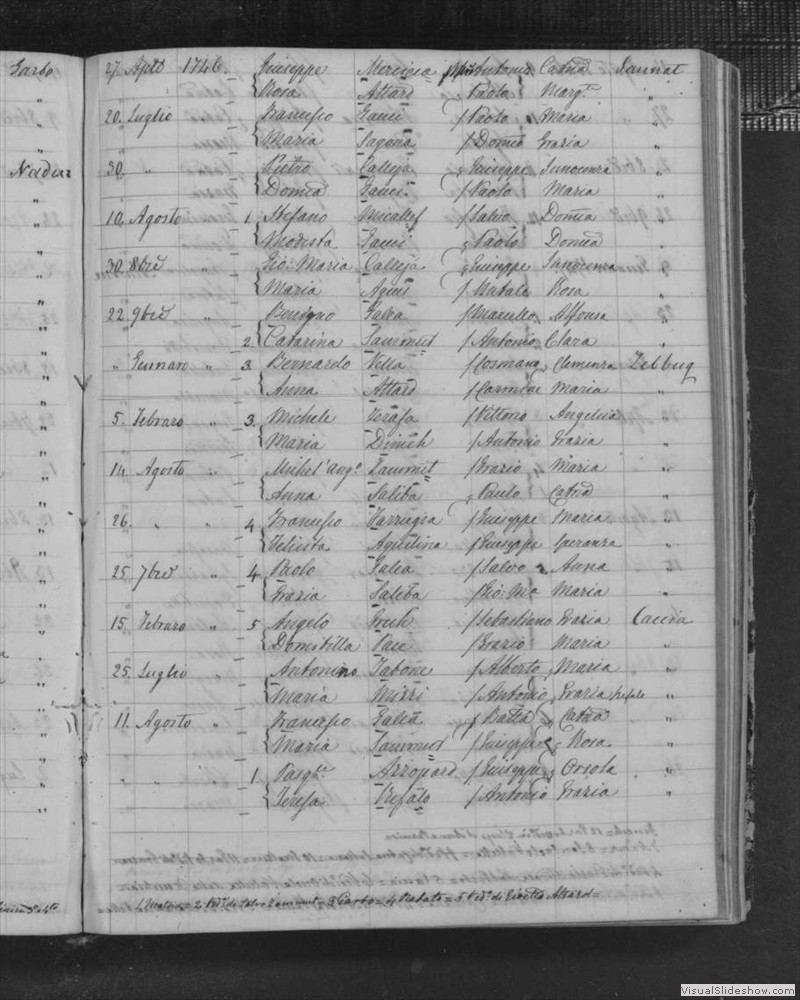 Garbo
Nadur
27. Aple 1746. Giuseppe Mercieca Antonio Catna Sannat
Rosa Attard f Paolo Margta "
20. Luglio " Francesco Gauci f Paolo Maria "
Maria Sagona f Domco Grazia "
30. " " Pietro Calleja f Giuseppe Innocenza "
Domca Gauci f Paolo Maria "
10. Agosto 1. Stefano Micallef f Salvo Domca "
Modesta Gauci f Paolo Domca "
30. 8bre " Gio: Maria Calleja f Giuseppe Innocenza "
Maria Agius f Natale Rosa "
22. 9bre " Benigno f Marcello Alfonsa "
2. Catarina Sammut f Antonio Clara "
" Gennaro " 3. Bernardo Vella f Cosmano Clemenza Zebbug
Anna Attard f Carmine Maria "
5. Febraro " 3. Michele f Vittorio Angelica "
Maria f Antonio Grazia "
14. Agosto " Michel'Ango Zammit f Grazio Maria "
Anna Saliba f Paulo Catna "
26. " " 4 Francesco Farrugia f Giuseppe Maria "
Felicita Agustina f Giuseppe Speranza "
25. 7bre " 4 Paolo Galea f Salvo Anna "
Grazia Saliba f Gio: Ma Maria "
15. Febraro " 5 Angelo Grech f Sebastiano Grazia Caccia
Domitilla Pace f Grazio Maria "
25. Luglio Antonino Tabone f Alberto Maria "
Maria Mizzi f Antonio Grazia "
11. Agosto " Francesco Galea f Batta Catna "
Maria Sammut f Giuseppe Rosa "
" " 1. Pasqle Azzopard f Giuseppe Orsola "
Teresa Refalo f Antonio Grazia "
1. Matrice = 2. Ved. di Salvo Sammut = 3 Garbo = 4 Rabato = 5 Ved. di Attard =
VisualSlideshow.com